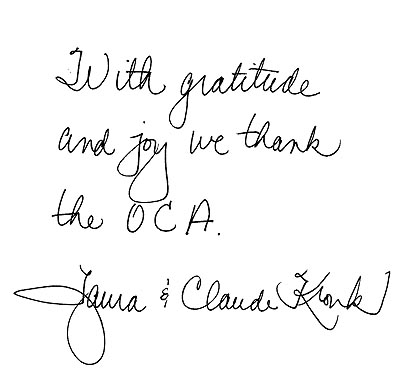 With gratitude
and joy we thank
the OCA.
Laura & Claude Kronk